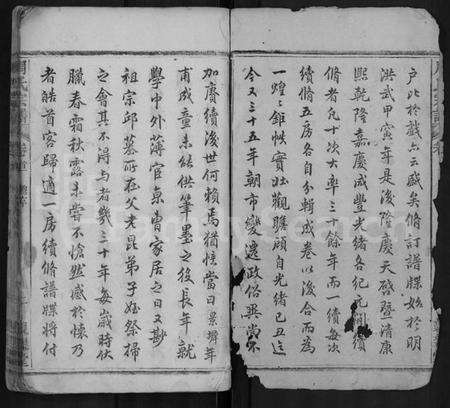 戶比於戲亦云盛矣修訂譜牒始於明
洪武甲寅年是後隆慶天啟暨清康
熙乾隆嘉慶咸豐光緒各紀元間續
修者凡十次大率三十餘年而一續每次
續修五房各自分輯成卷以後合而為
一煌鉅帙實壯觀瞻顧自光緒己丑迄
今又三十五年朝市變遷政俗異尚不
加賡續後世何賴焉猶憶當日景壎年
甫成童未能供筆墨之役長年就
學中外薄宦京曹家居之日又尟
祖宗邱墓所在父老昆弟子姪祭掃
之會其不得與者幾三十年每歲時伏
臘春霜秋露未嘗不愴然感於懷乃
者皓首客歸適一房續修譜牒將付